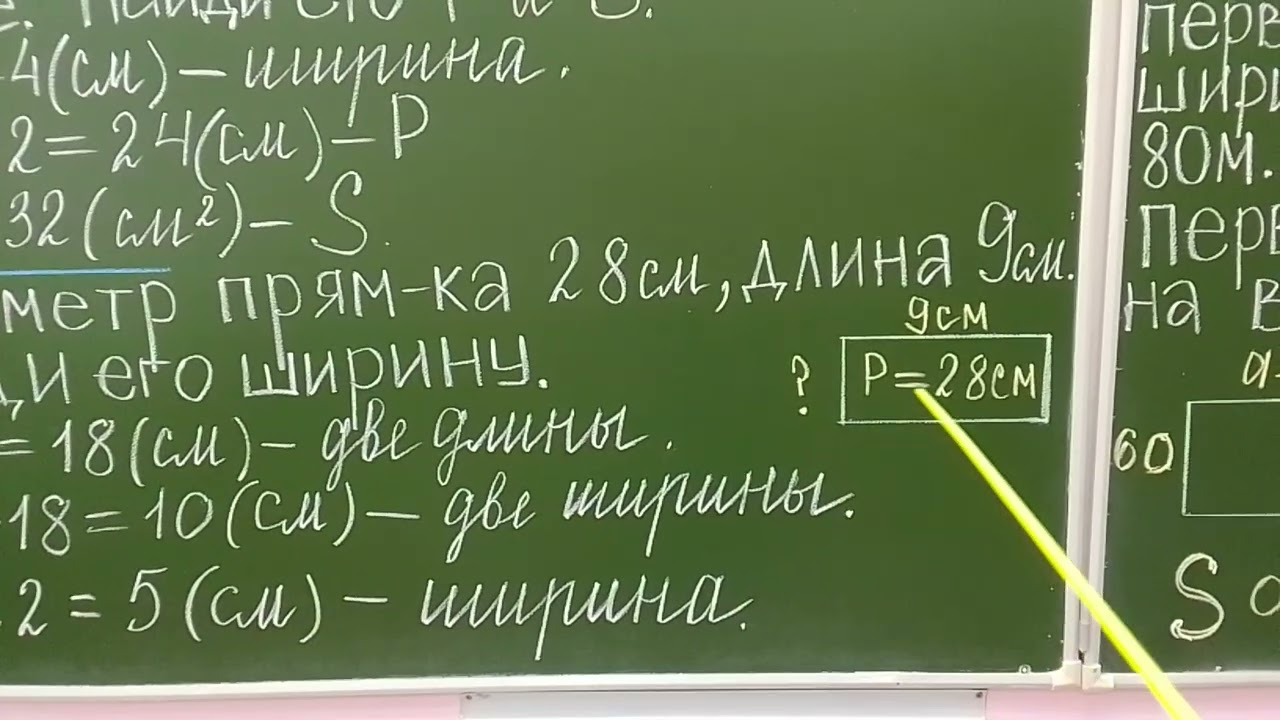 4(см) – ширина.
2 = 24(см) – P
32(см²) – S.
метр прям-ка 28см, длина 9см.
ди его ширину.
= 18(см) – две длины.
18 = 10(см) – две ширины.
2 = 5(см) – ширина.
9см
? P = 28см
перв
шири
80м.
перв
на в
60
S